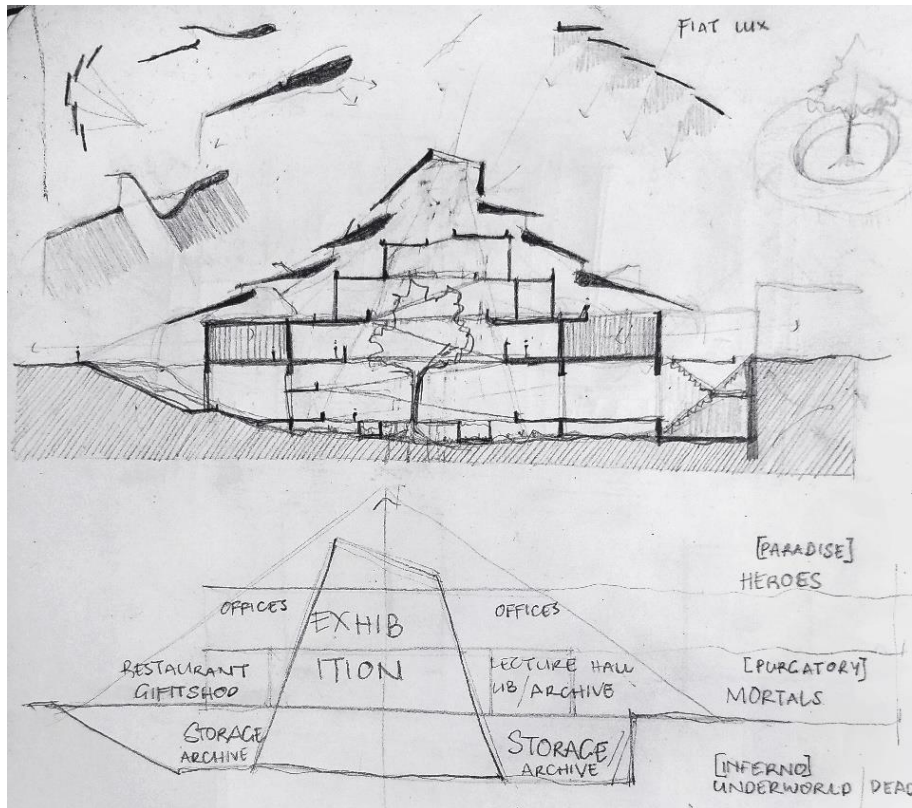 FIAT LUX
[PARADISE]
HEROES
OFFICES
OFFICES
EXHIB
ITION
RESTAURANT
GIFTSHOP
LECTURE HALL
LIB/ARCHIVE
[PURGATORY]
MORTALS
STORAGE
ARCHIVE
STORAGE
ARCHIVE
[INFERNO]
UNDERWORLD/DEAD